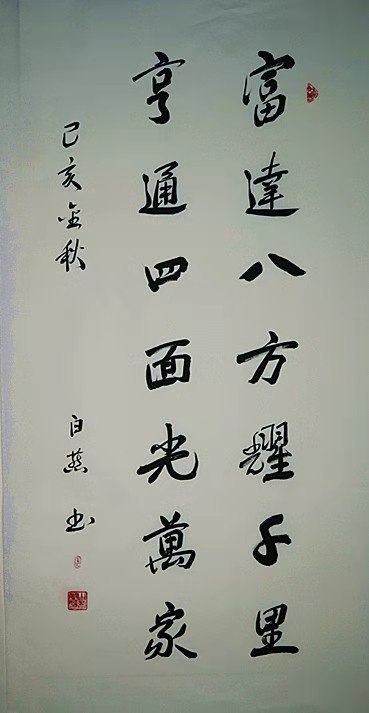 富達八方耀千里
亨通四面光萬家
己亥金秋
白燕书